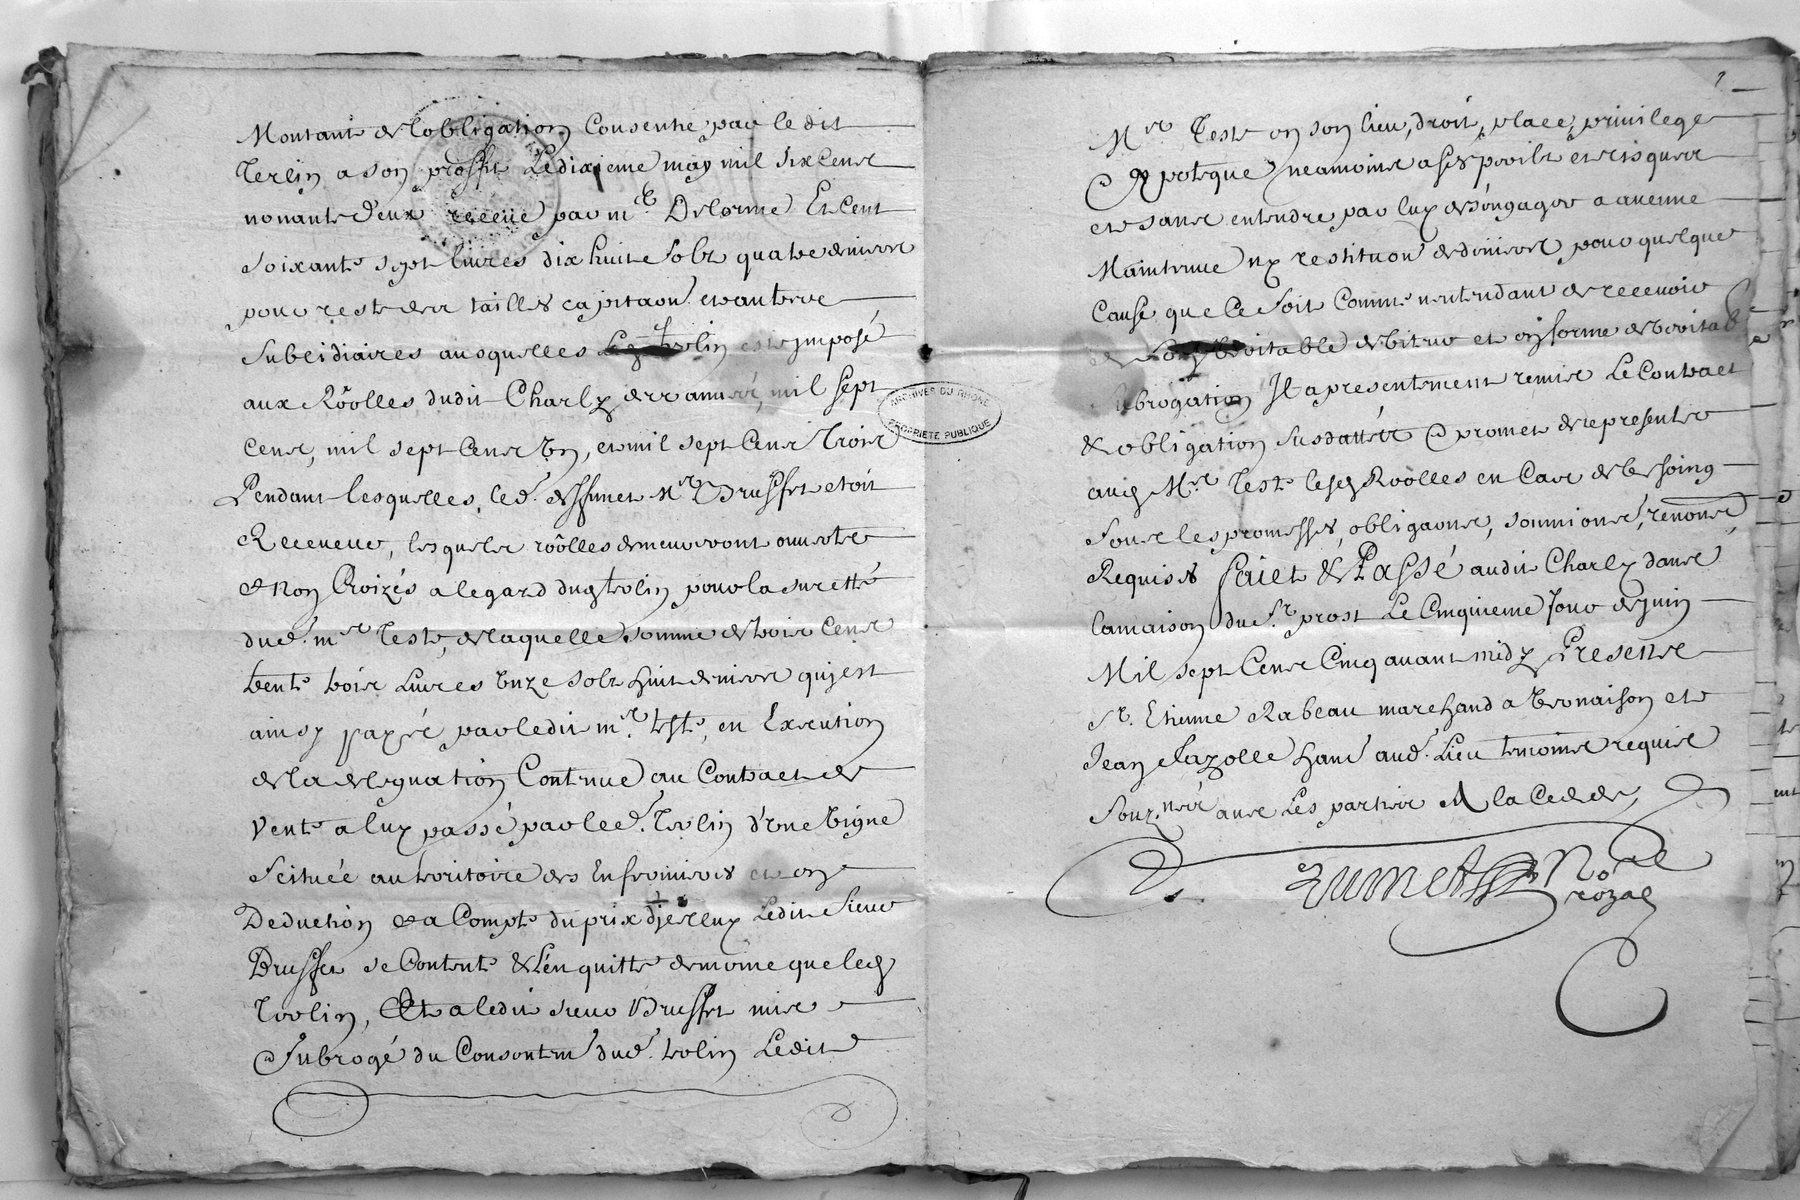 Montant de lobligation Consentie par le dit
Terlin a son proffit Le dixieme may mil six Cens
nonante d'eux receue par me Delorme Et Cent
soixante sept livres dix huit solz quatre deniers
pour reste des tailles capitaon. et autres
subcidiaires ausquelles est imposé
aux Roolles dudit Charly és années, mil sept
Cens, mil sept Cens Un, et mil sept Cens Trois
Pendant lesquelles, led. deffunct Mr Brusset etoit
Receveur, lesquels roolles demeureront ouverts
et Non Croizés a legard dud trolin pour la sureté
dud. mr Teste, de laquelle somme de trois Cens
trente trois Livres Unze solz huit deniers qui est
ainsy payée par ledit mr teste, en Execution
de la delegation Contenue au Contract de
Vente a luy passé par led. Trolin d'Une Vigne
Scituée au territoire des et en
Deduction et a Compte du prix d'jcelluy Ledit Sieur
Brusset se Contente & l'en quitte de mome que led
Trolin, Et a ledit sieur Brusset mis
Subrogé du Consentm dud. trolin Ledit
Mr Teste en son lieu, droit, place, privilege
Ypoteque neamoins a ses perilz et risques
et sans entendre par luy de s'engager a aucune
Maintenue ny restituon de deniers pour quelque
Cause que Ce soit Comme nentendant de recevoir
de titre et en forme de
subrogation Il a presentement remis Le Contract
& obligation susdattés & promet de representer
aud Mr Teste lesd Roolles en Cas de besoing
sous les promesses, obligaons, soumions, renons,
Requises Faict & Passé audit Charly dans
la maison du Sr prost Le Cinquieme Jour de juin
Mil sept Cens Cinq avant midy Presens
Sr. Etienne Rabeau marchand a Vernaison et
Jean habt aud. Lieu temoins requis
Souznés avec Les parties A la Cedde
No.re
royal
ARCHIVES DU RHONE
PROPRIETE PUBLIQUE